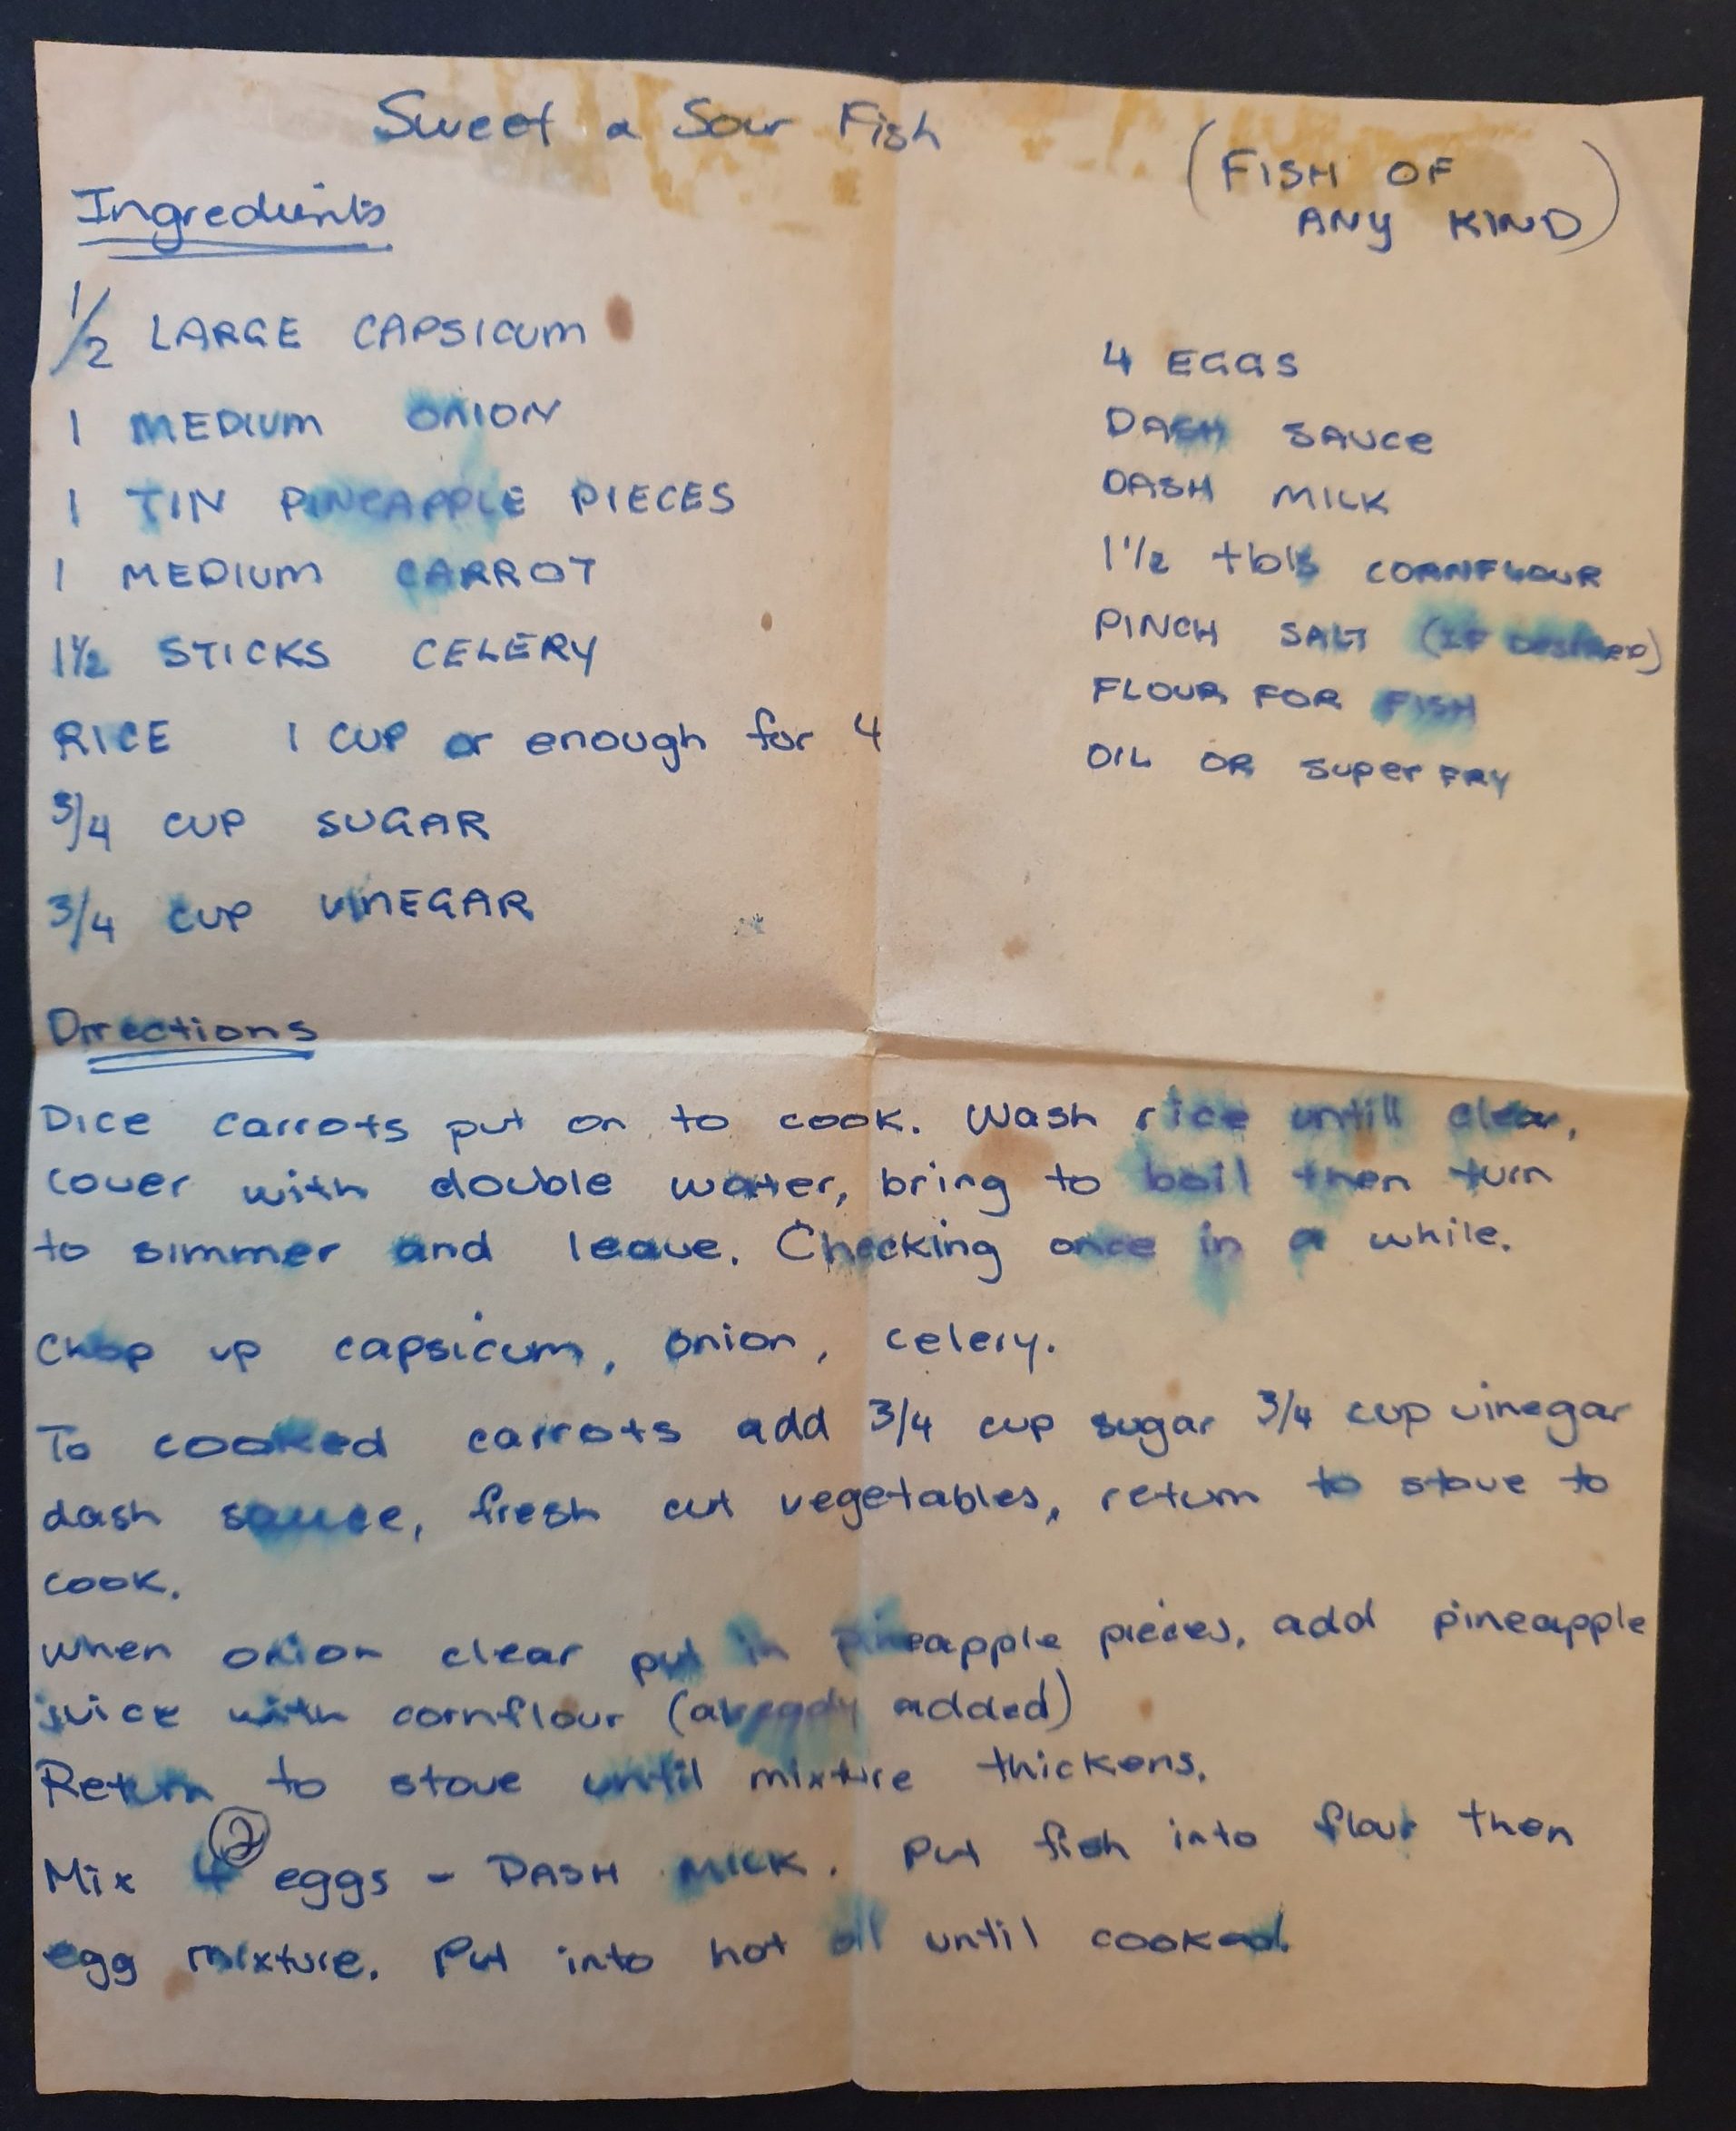 Sweet & Sour Fish
(FISH OF
ANY KIND)
Ingredients
1/2 LARGE CAPSICUM
1 MEDIUM ONION
1 TIN PINEAPPLE PIECES
1 MEDIUM CARROT
1½ STICKS CELERY
RICE 1 CUP or enough for 4
3/4 CUP SUGAR
3/4 CUP VINEGAR
4 EGGS
DASH SAUCE
DASH MILK
1½ tbls CORNFLOUR
PINCH SALT (IF DESIRED)
FLOUR FOR FISH
OIL OR SUPER FRY
Directions
Dice carrots put on to cook. Wash rice untill clear,
cover with double water, bring to boil then turn
to simmer and leave. Checking once in a while.
Chop up capsicum, onion, celery.
To cooked carrots add 3/4 cup sugar 3/4 cup vinegar
dash sauce, fresh cut vegetables, return to stove to
cook.
when onion clear put in pineapple pieces, add pineapple
juice with cornflour (already added)
Return to stove until mixture thickens.
Mix 4 2 eggs - DASH MILK. Put fish into flour then
egg mixture. Put into hot oil until cooked.